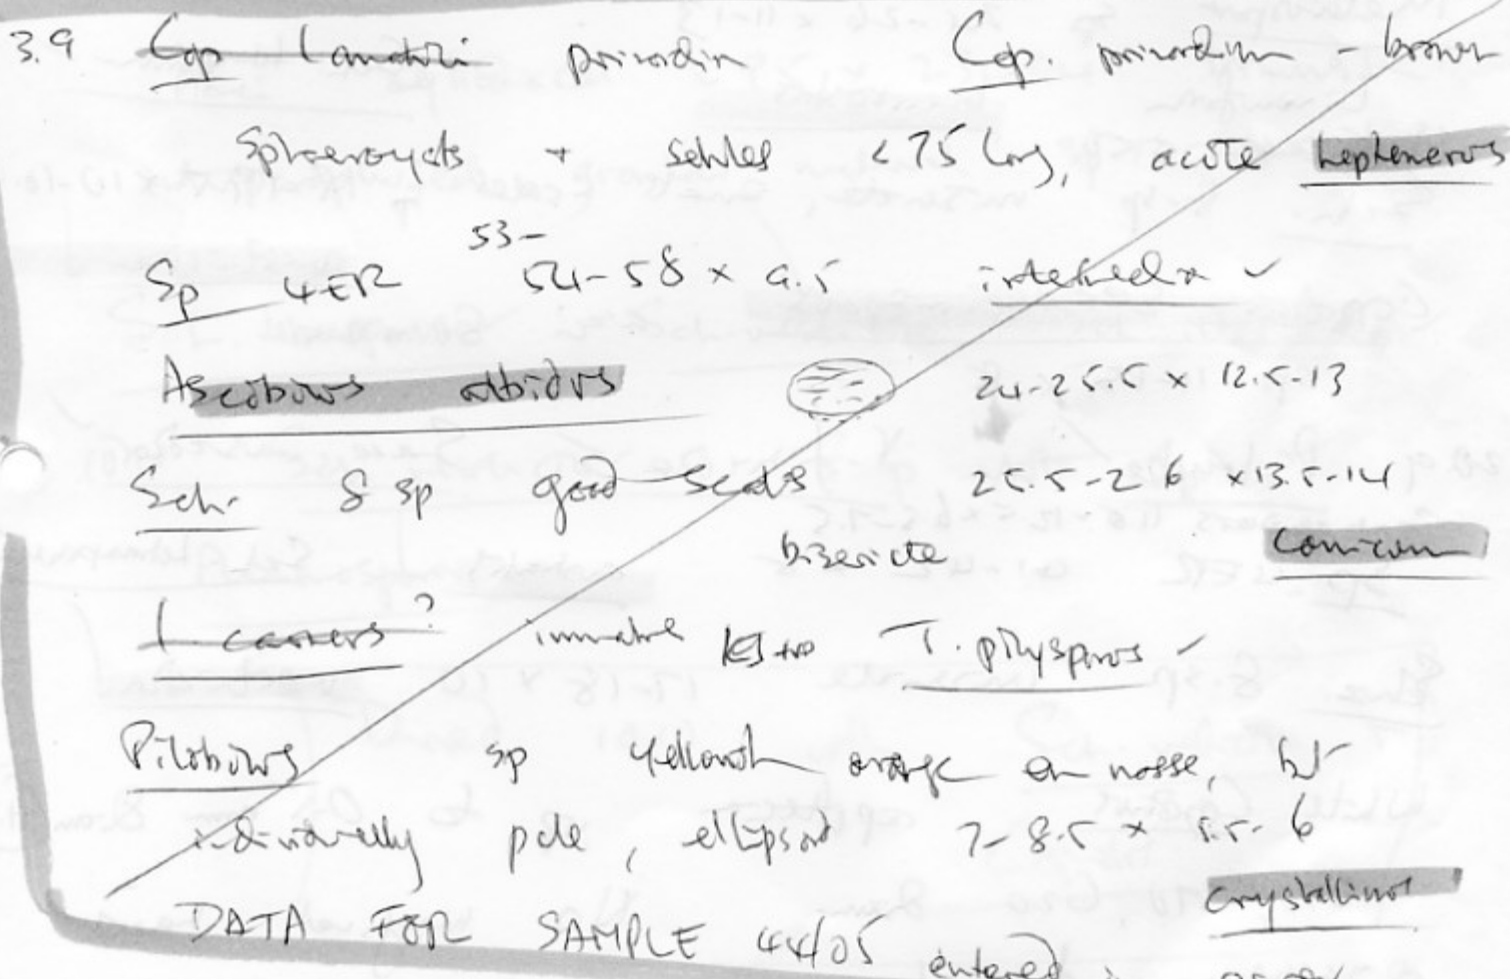 3.9 Cop primordia Cop. primordium - brown
Sphaerocysts + setules <75 long, acute heptemerus
53-
Sp 4ER 54-58 x 9.5 intermedia ✓
Ascobolus albidus 24-25.5 x 12.5-13
Sch. 8 sp good scales 25.5-26 x 13.5-14
biseriate conicum
immature T. polysporus ✓
Pilobolus sp yellowish orange en masse, but
individually pale, ellipsoid 7-8.5 x 5.5-6
crystallinus
DATA FOR SAMPLE 44/05 entered